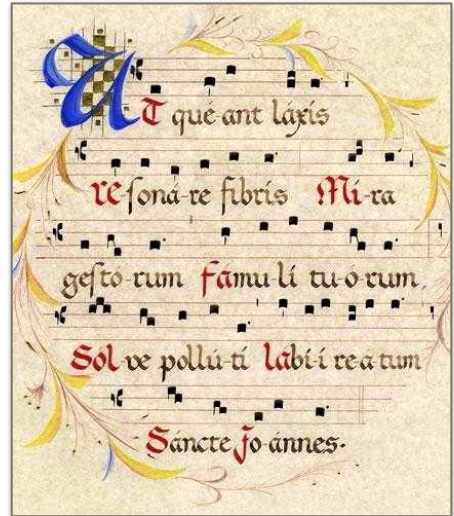 UT qué ant láxis
re-ſoná-re fibris Mi-ra
geſto-rum fámu-li tu-o-rum,
Sol-ve pollú-ti labi-i re a tum
Sáncte Jo ánnes.